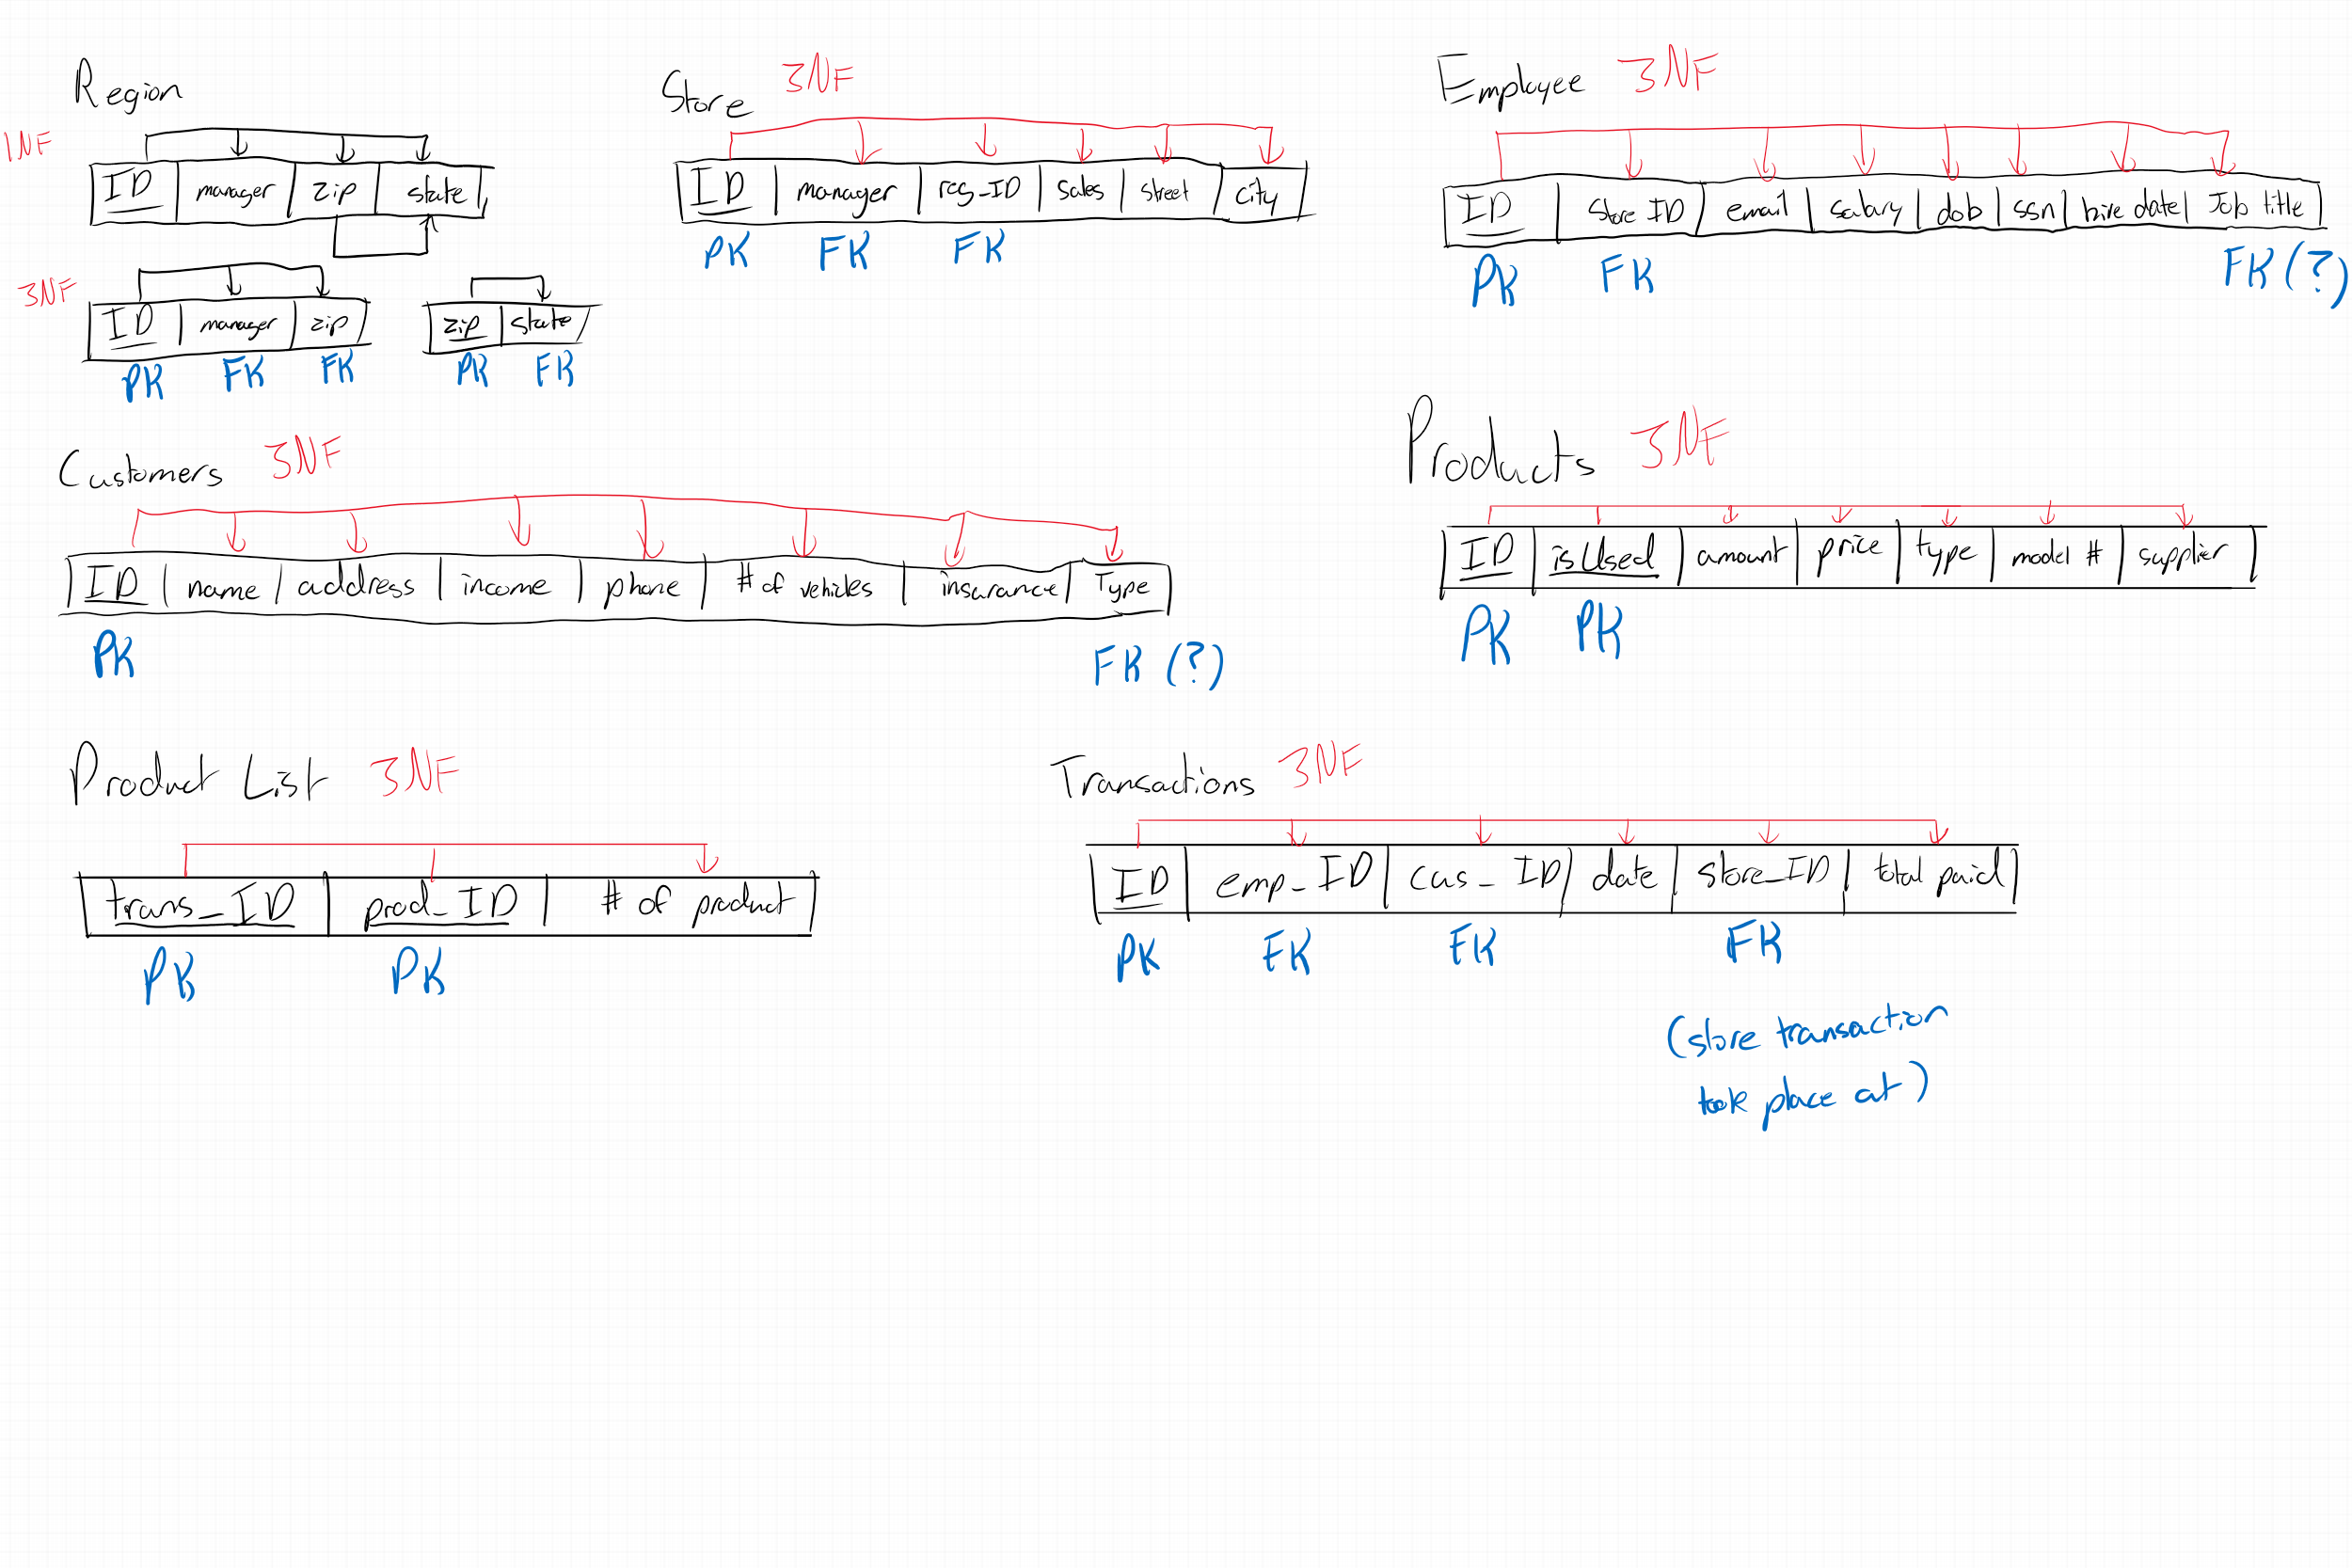 Region
1NF
ID manager zip state
3NF
ID manager zip
PK FK FK
zip state
PK FK
Store 3NF
ID manager reg_ID sales street city
PK FK FK
Employee 3NF
ID Store ID email salary dob ssn hire date Job title
PK FK FK (?)
Customers 3NF
ID name address income phone # of vehicles insurance Type
PK FK (?)
Products 3NF
ID is Used amount price type model # supplier
PK PK
Product List 3NF
trans_ID prod_ID # of product
PK PK
Transactions 3NF
ID emp_ID cus_ID date store_ID total paid
PK FK FK FK
(store transaction
took place at)